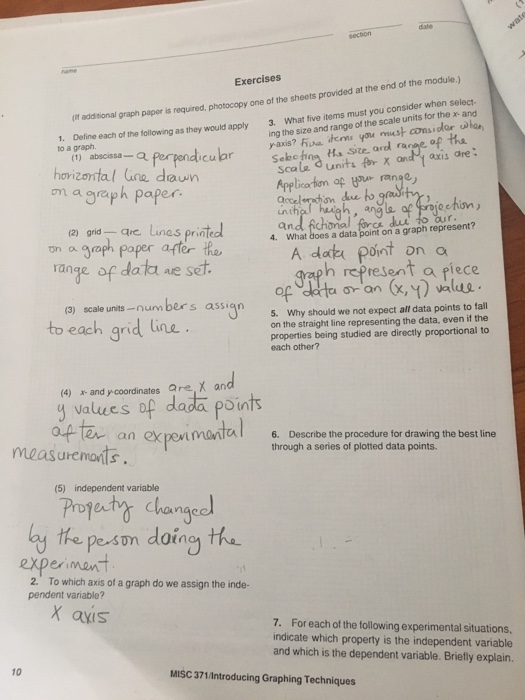 wate
date
section
name
Exercises
(If additional graph paper is required, photocopy one of the sheets provided at the end of the module.)
1. Define each of the following as they would apply
to a graph.
(1) abscissa — a perpendicular
horizontal line drawn
on a graph paper.
(2) grid — are lines printed
on a graph paper after the
range of data are set.
(3) scale units — numbers assign
to each grid line.
(4) x- and y-coordinates are X and
y values of dada points
after an experimental
measurements.
(5) independent variable
Property changed
by the person doing the
experiment.
2. To which axis of a graph do we assign the inde-
pendent variable?
X axis
3. What five items must you consider when select-
ing the size and range of the scale units for the x- and
y-axis? Five items you must consider when
selecting the size and range of the
scale units for x and y axis are:
Application of your range,
acceleration due to gravity,
initial heigh, angle of projection,
and fictional force due to air.
4. What does a data point on a graph represent?
A data point on a
graph represent a piece
of data or an (x,y) value.
5. Why should we not expect all data points to fall
on the straight line representing the data, even if the
properties being studied are directly proportional to
each other?
6. Describe the procedure for drawing the best line
through a series of plotted data points.
7. For each of the following experimental situations,
indicate which property is the independent variable
and which is the dependent variable. Briefly explain.
10
MISC 371/Introducing Graphing Techniques